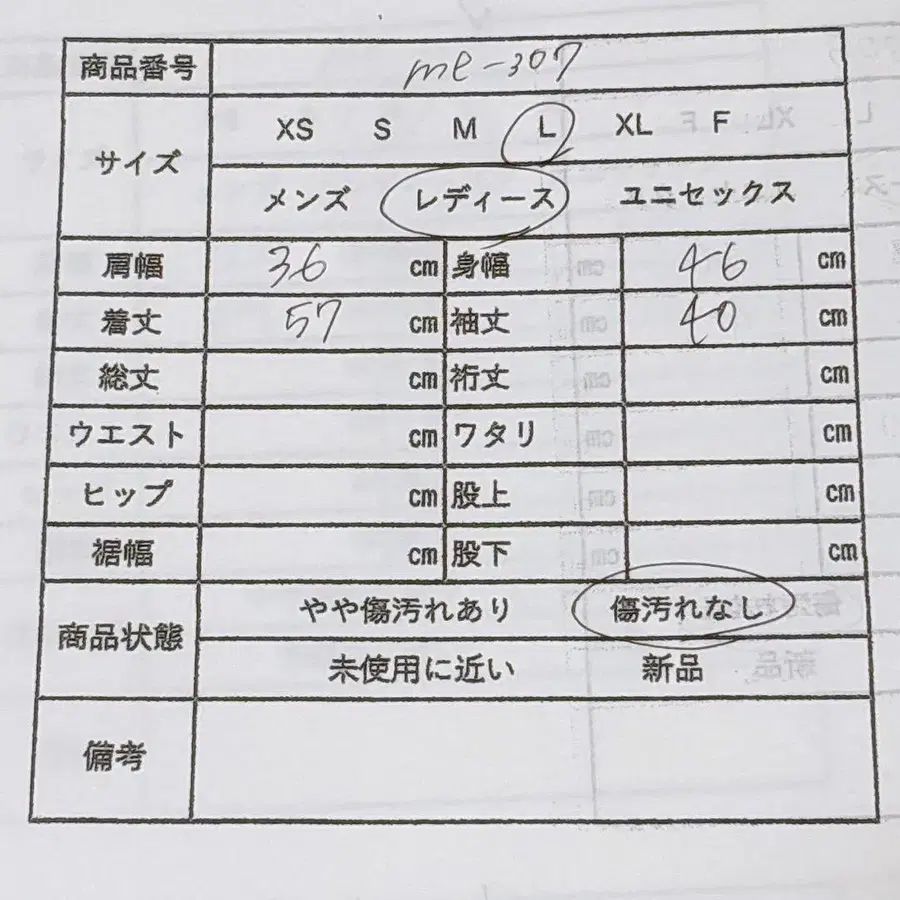 商品番号 me-307
サイズ XS S M L XL F
メンズ レディース ユニセックス
肩幅 36 cm 身幅 46 cm
着丈 57 cm 袖丈 40 cm
総丈 cm 裄丈 cm
ウエスト cm ワタリ cm
ヒップ cm 股上 cm
裾幅 cm 股下 cm
商品状態 やや傷汚れあり 傷汚れなし
未使用に近い 新品
備考